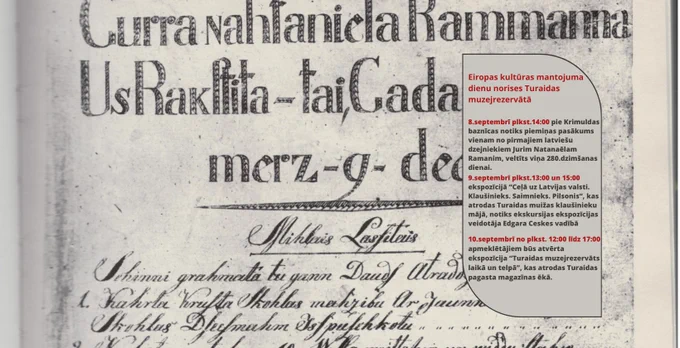 Curra Nahtaniela Rammanna
Us Rakstita-tai, Gada
merz-9-dee
Mihlais Lassitais
Schinni grahmatâ tu gann Daudf Atradd
1. Kahrla Krusta Skohlas
Skohlas
Eiropas kultūras mantojuma
dienu norises Turaidas
muzejrezervātā
8.septembrī plkst.14:00 pie Krimuldas
baznīcas notiks piemiņas pasākums
vienam no pirmajiem latviešu
dzejniekiem Jurim Natanaēlam
Ramanim, veltīts viņa 280.dzimšanas
dienai.
9.septembrī plkst.13:00 un 15:00
ekspozīcijā "Ceļā uz Latvijas valsti.
Klaušinieks. Saimnieks. Pilsonis", kas
atrodas Turaidas muižas klaušinieku
mājā, notiks ekskursijas ekspozīcijas
veidotāja Edgara Ceskes vadībā
10.septembrī no plkst. 12:00 līdz 17:00
apmeklētājiem būs atvērta
ekspozīcija "Turaidas muzejrezervāts
laikā un telpā", kas atrodas Turaidas
pagasta magazīnas ēkā.